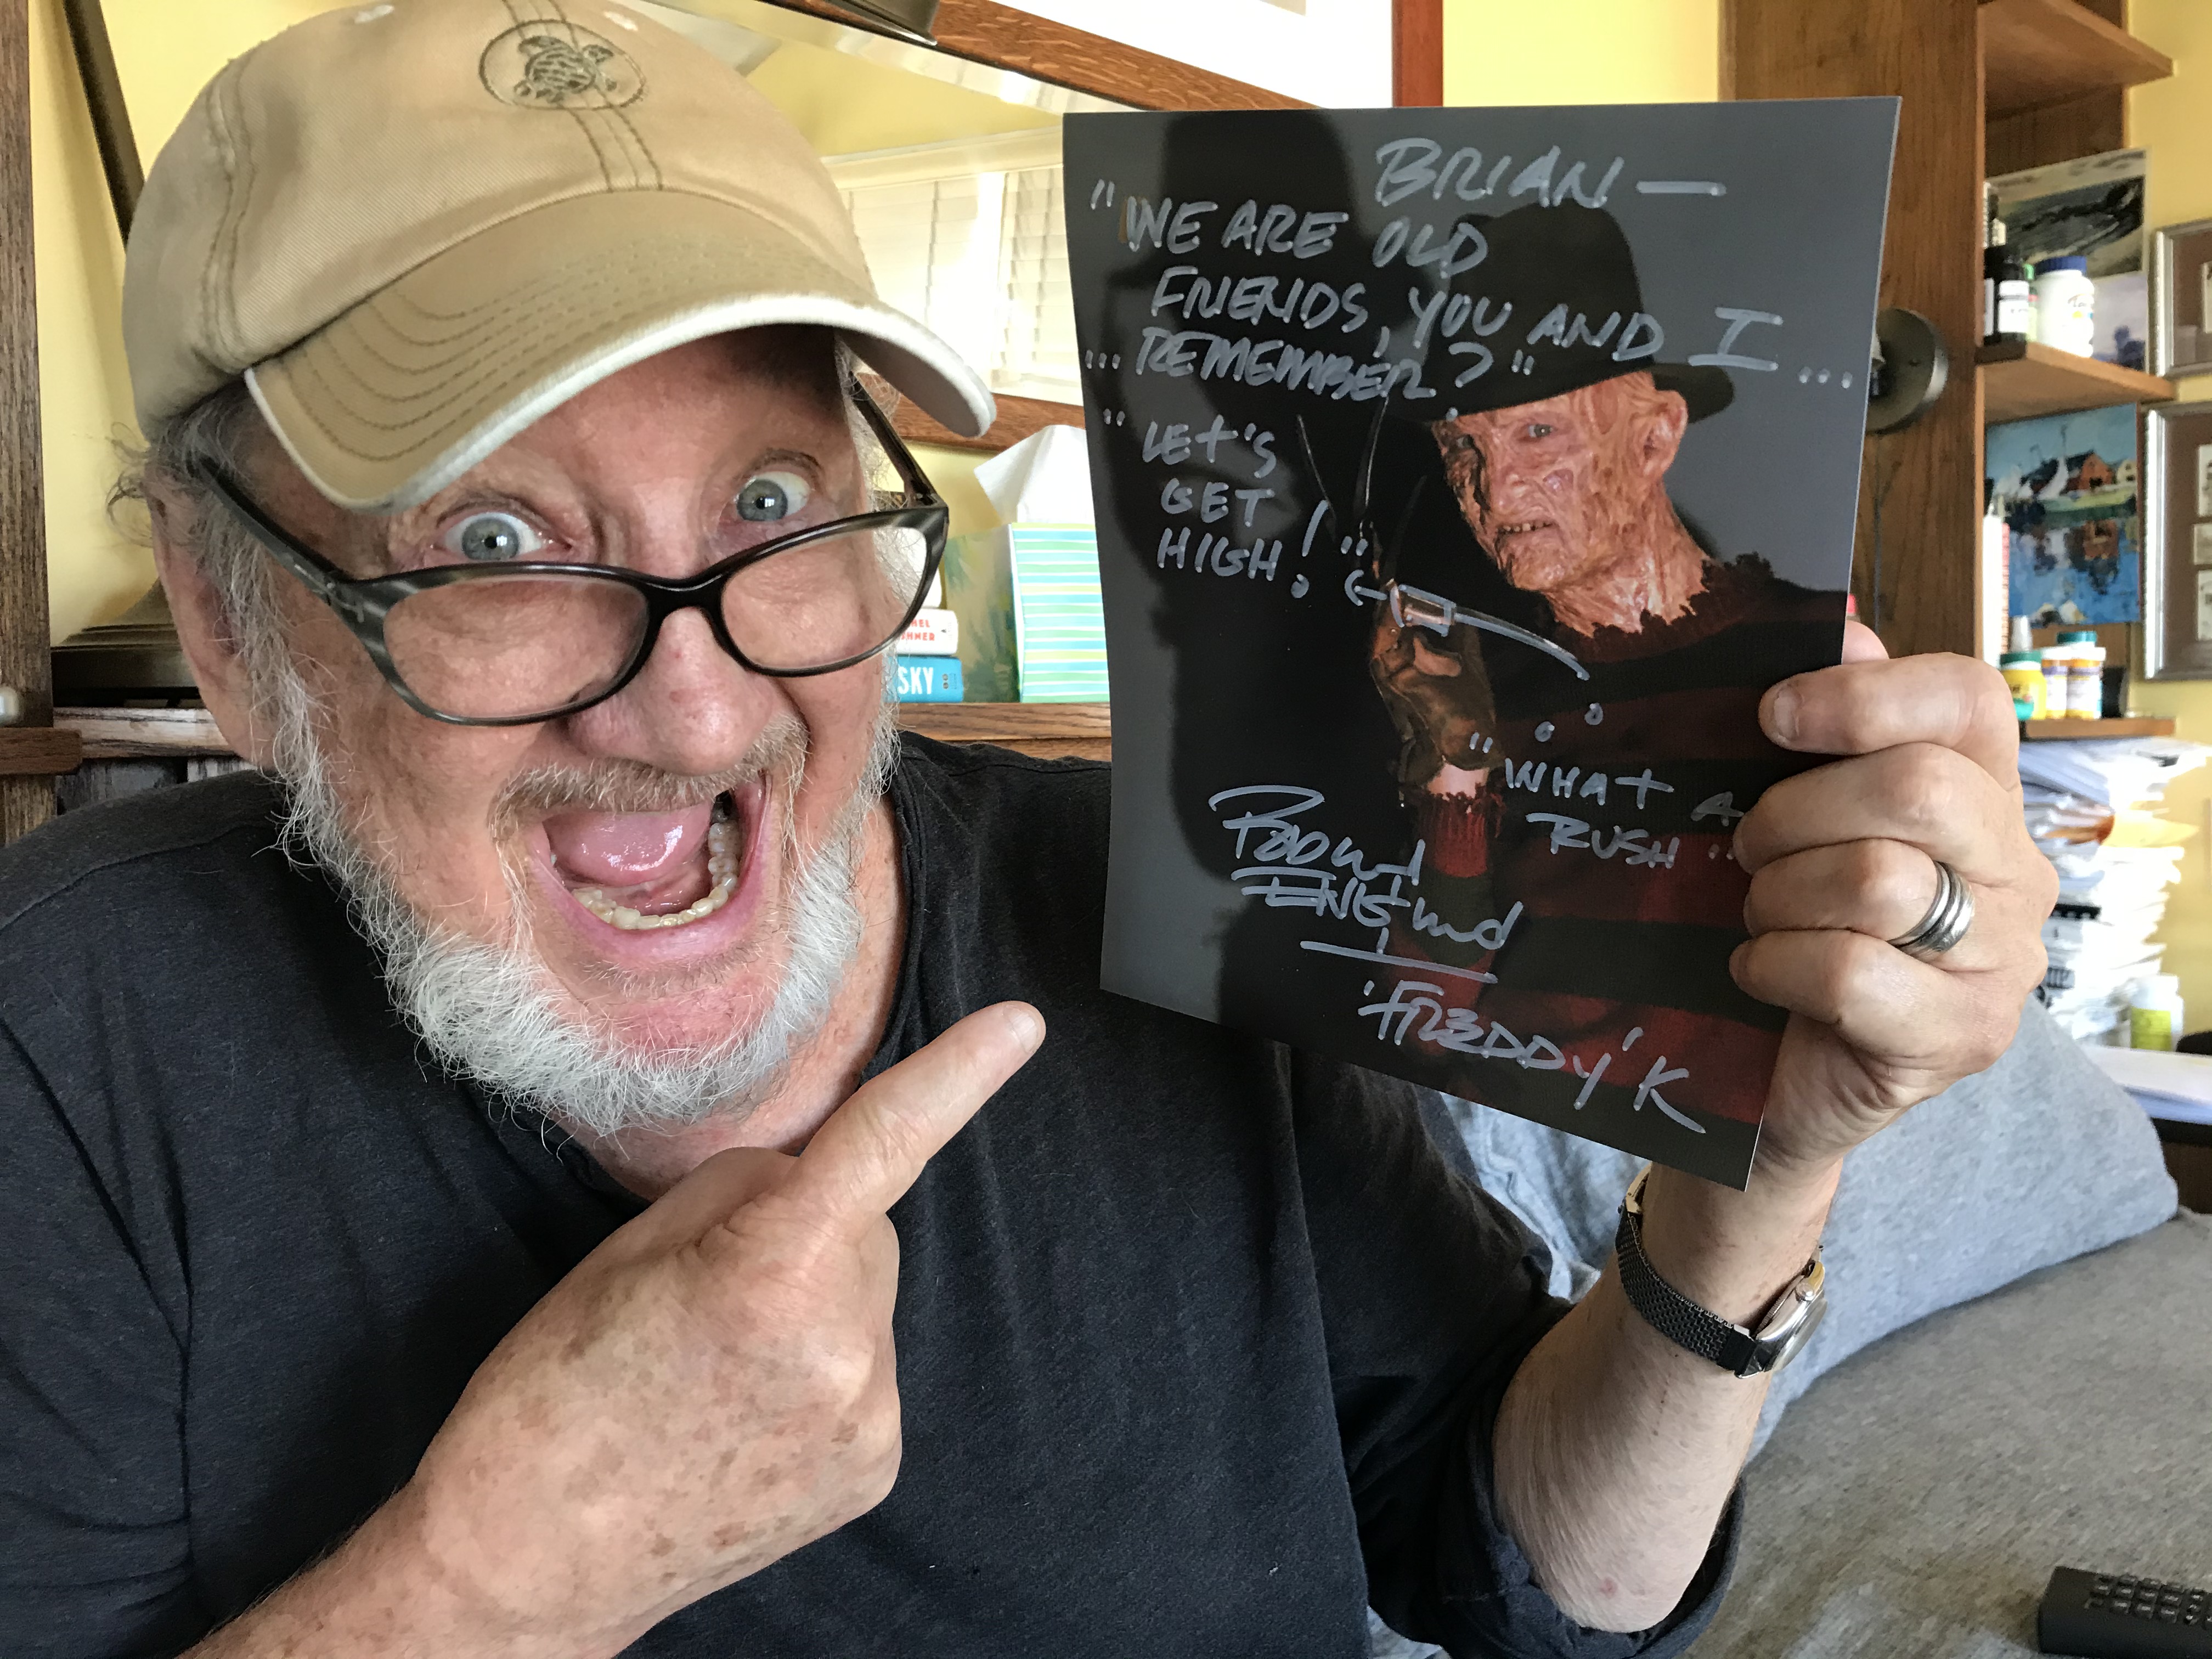 BRIAN —
"WE ARE OLD
FRIENDS, YOU AND I ...
... REMEMBER?"
"LET'S
GET
HIGH!"
"WHAT A
RUSH"
Robert
Englund
'FREDDY' K
SKY